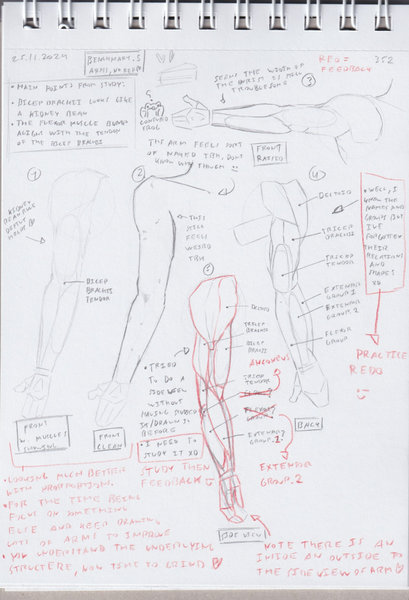 25.11.2024
BENCHMARK.5
ARMS,
RED =
FEEDBACK
352
• MAIN POINTS FROM STUDY:
• BICEP BRACHII LOOKS LIKE
A KIDNEY BEAN
• THE FLEXOR MUSCLE BUMP
ALIGNS WITH THE TENDON
OF THE BICEP BRACHII
CONFUSED
FROG
SEEMS THE WIDTH OF
THE WRIST IS MOST
TROUBLESOME
3
THE ARM FEELS SORT
OF NAKED TBH, DON'T
KNOW WHY THOUGH
FRONT
RAISED
1
KIDNEY
BEAN
BICEP
BRACHII
TENDON
FRONT
W. MUSCLES
SHOWING
2
THIS
STILL
FEELS
WEIRD
TBH
FRONT
CLEAN
4
DELTOID
TRICEP
BRACHII
TRICEP
TENDON
EXTENSOR
GROUP 1
EXTENSOR
GROUP. 2
FLEXOR
GROUP
BACK
• WELL, I
KNOW THE
NAMES AND
GROUPS BUT
I'VE
FORGOTTEN
THEIR
RELATIONS
AND
SHAPES
XD
PRACTICE
REDO
5
• TRIED
TO DO A
SIDE VIEW
WITHOUT
HAVING STUDIED
IT/DRAWN IT
BEFORE
• I NEED TO
STUDY IT XD
STUDY THEN
FEEDBACK
DELTOID
TRICEP
BRACHII
BICEP
BRACHII
ANCONEUS
TRICEP
TENDON
FLEXOR
GROUP
EXTENSOR
GROUP. 1
EXTENSOR
GROUP. 2
SIDE VIEW
• LOOKING MUCH BETTER
WITH PROPORTION.
• FOR THE TIME BEING
FOCUS ON SOMETHING
ELSE AND KEEP DRAWING
LOTS OF ARMS TO IMPROVE
• YOU UNDERSTAND THE UNDERLYING
STRUCTURE, NOW TIME TO GRIND
NOTE THERE IS AN
INSIDE AN OUTSIDE TO
THE SIDE VIEW OF ARM